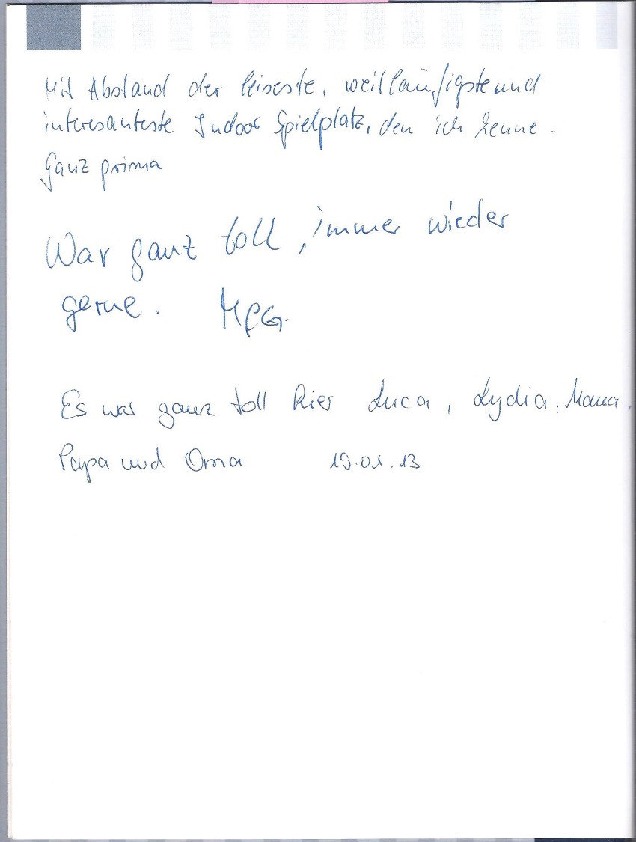 Mit Abstand der leiseste, weitläufigste und
interesanteste Indoor Spielplatz, den ich kenne.
Ganz prima
War ganz toll, immer wieder
gerne. MfG
Es war ganz toll hier Luca, Lydia, Mama,
Papa und Oma 19.01.13